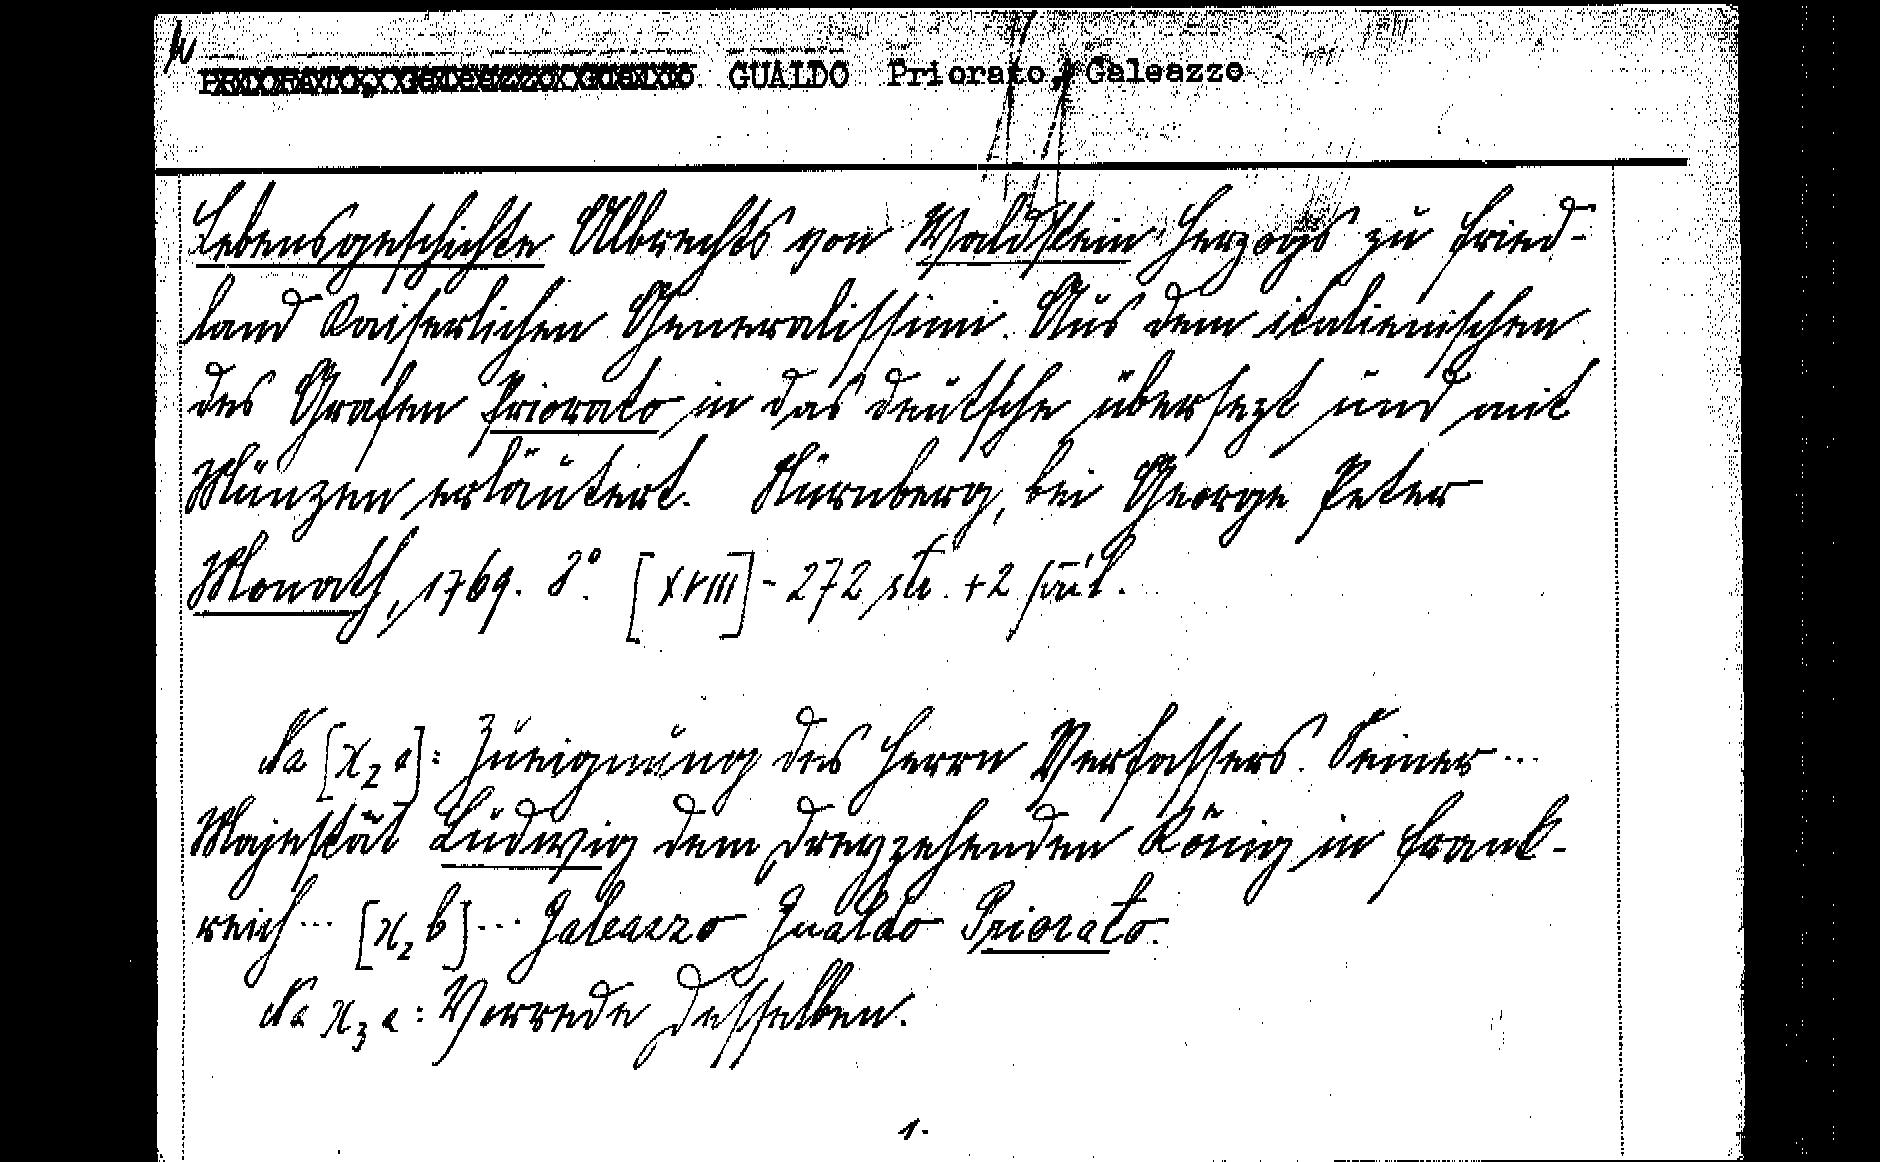 GUALDO Priorato, Galeazzo
Lebensgeschichte Albrechts von Waldstein Herzogs zu Fried-
land Kaiserlichen Generalissimi. Aus dem italienischen
des Grafen Priorato in das deutsche übersezt und mit
Münzen erläutert. Nürnberg, bei George Peter
Monath, 1769. 8°. [XVIII] - 272 str. + 2 příl.
Na [x2a]: Zueignung des Herrn Verfassers. Seiner ...
Majestät Ludwig dem dreyzehenden König in Frank-
reich ... [x2b] ... Galeazzo Gualdo Priorato.
Na x3a: Vorrede desselben.
1.